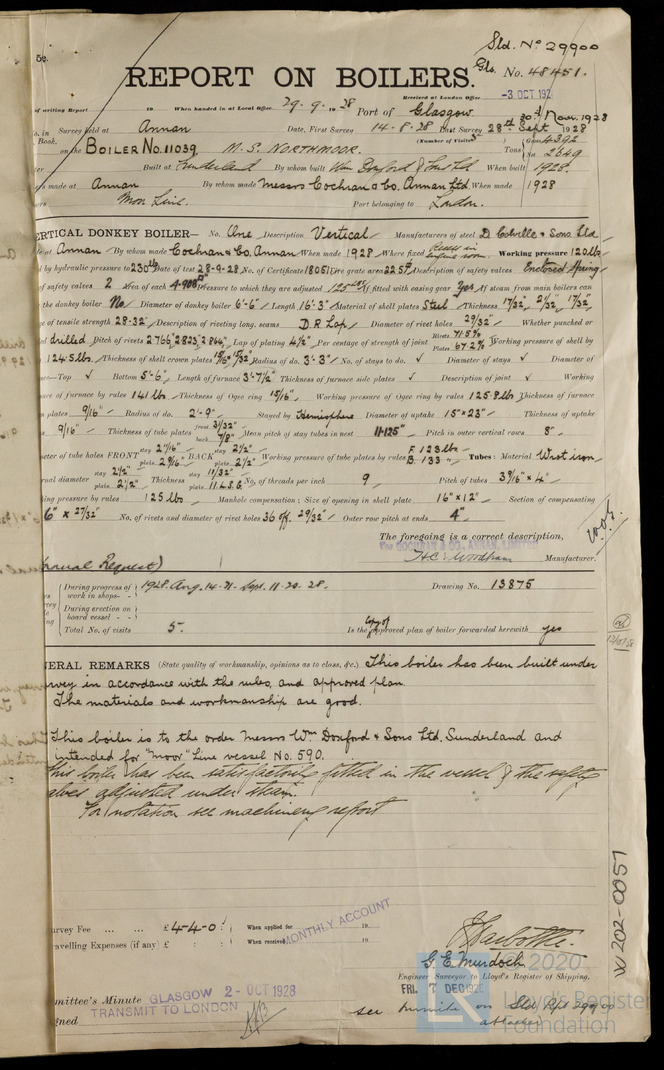 Sld. No 29900
5c.
REPORT ON BOILERS.
Gls. No. 48451.
Received at London Office -3 OCT 192
of writing Report 19 When handed in at Local Office 29-9-1928 Port of Glasgow
No. in Survey held at Annan Date, First Survey 14-8-28 Last Survey 28th Sept 1928
30th Nov. 1928
Book. on the BOILER No. 11039. M.S. NORTHMOOR. (Number of Visits) Tons Gross 4392
Net 2649
Built at Sunderland By whom built Wm Doxford & Sons Ltd When built 1928.
made at Annan By whom made Messrs Cochran & Co. Annan Ltd. When made 1928
Moor Line. Port belonging to London.
ERTICAL DONKEY BOILER— No. One Description Vertical Manufacturers of steel D. Colville & Sons Ltd
at Annan By whom made Cochran & Co. Annan When made 1928 Where fixed Recess in engine room. Working pressure 120 lbs
by hydraulic pressure to 230 lbs Date of test 28-9-28 No. of Certificate 18051 Fire grate area 22.5 Description of safety valves Enclosed Spring
of safety valves 2 Area of each 4.908 Pressure to which they are adjusted 125 lbs If fitted with easing gear Yes If steam from main boilers can
the donkey boiler No Diameter of donkey boiler 6'-6" Length 16'-3" Material of shell plates Steel Thickness 17/32", 21/32", 17/32"
of tensile strength 28-32 Description of riveting long. seams D.R. Lap. Diameter of rivet holes 29/32" Whether punched or
drilled Pitch of rivets 2.766" 2.823" 2.844" Lap of plating 4½" Per centage of strength of joint Rivets 71.5% Plates 67.2% Working pressure of shell by
124.5 lbs. Thickness of shell crown plates 15/16" 15/32" Radius of do. 3'-3" No. of stays to do. ✓ Diameter of stays ✓ Diameter of
—Top ✓ Bottom 5'-6" Length of furnace 3'-7½" Thickness of furnace side plates ✓ Description of joint ✓ Working
of furnace by rules 141 lbs Thickness of Ogee ring 15/16" Working pressure of Ogee ring by rules 125.8 lbs Thickness of furnace
plates 9/16" Radius of do. 2'-9" Stayed by Hemisphere Diameter of uptake 15" x 23" Thickness of uptake
9/16" Thickness of tube plates front 31/32" back 7/8" Mean pitch of stay tubes in nest 11.125" Pitch in outer vertical rows 8"
eter of tube holes FRONT stay 2 11/16" plain 2 9/16" BACK stay 2½" plain 2½" Working pressure of tube plates by rules F. 123 lbs B. 133 " Tubes: Material Wrot iron
nal diameter stay 2½" plain 2½" Thickness stay 11/32" plain 11 L.S.G. No. of threads per inch 9 Pitch of tubes 3 9/16" x 4"
ing pressure by rules 125 lbs Manhole compensation: Size of opening in shell plate 16" x 12" Section of compensating
6" x 27/32" No. of rivets and diameter of rivet holes 36 off. 29/32" Outer row pitch at ends 4"
The foregoing is a correct description,
For COCHRAN & CO., ANNAN, LIMITED
H.C. Woodham Manufacturer.
nnual Request)
During progress of work in shops - - 1928. Aug. 14-21. Sept. 11-20-28. Drawing No. 13875
During erection on board vessel - -
Total No. of visits 5- Is the copy of approved plan of boiler forwarded herewith yes
NERAL REMARKS (State quality of workmanship, opinions as to class, &c.) This boiler has been built under
rvey in accordance with the rules, and approved plan.
The materials and workmanship are good.
This boiler is to the order Messrs Wm Doxford & Sons Ltd. Sunderland and
intended for "Moor" Line vessel No. 590.
This boiler has been satisfactorily fitted in the vessel & the safety
valves adjusted under steam.
For notation see machinery report
W202-0057
urvey Fee ... ... £ 4-4-0 : When applied for 19
MONTHLY ACCOUNT
ravelling Expenses (if any) £ : : When received, 19
G. E. Murdoch
Engineer Surveyor to Lloyd's Register of Shipping.
mmittee's Minute GLASGOW 2-OCT 1928
FRI. 7 DEC 1928
TRANSMIT TO LONDON
gned
see minute on Sld Rpt 29900
attached
© 2020
Lloyd's Register
Foundation